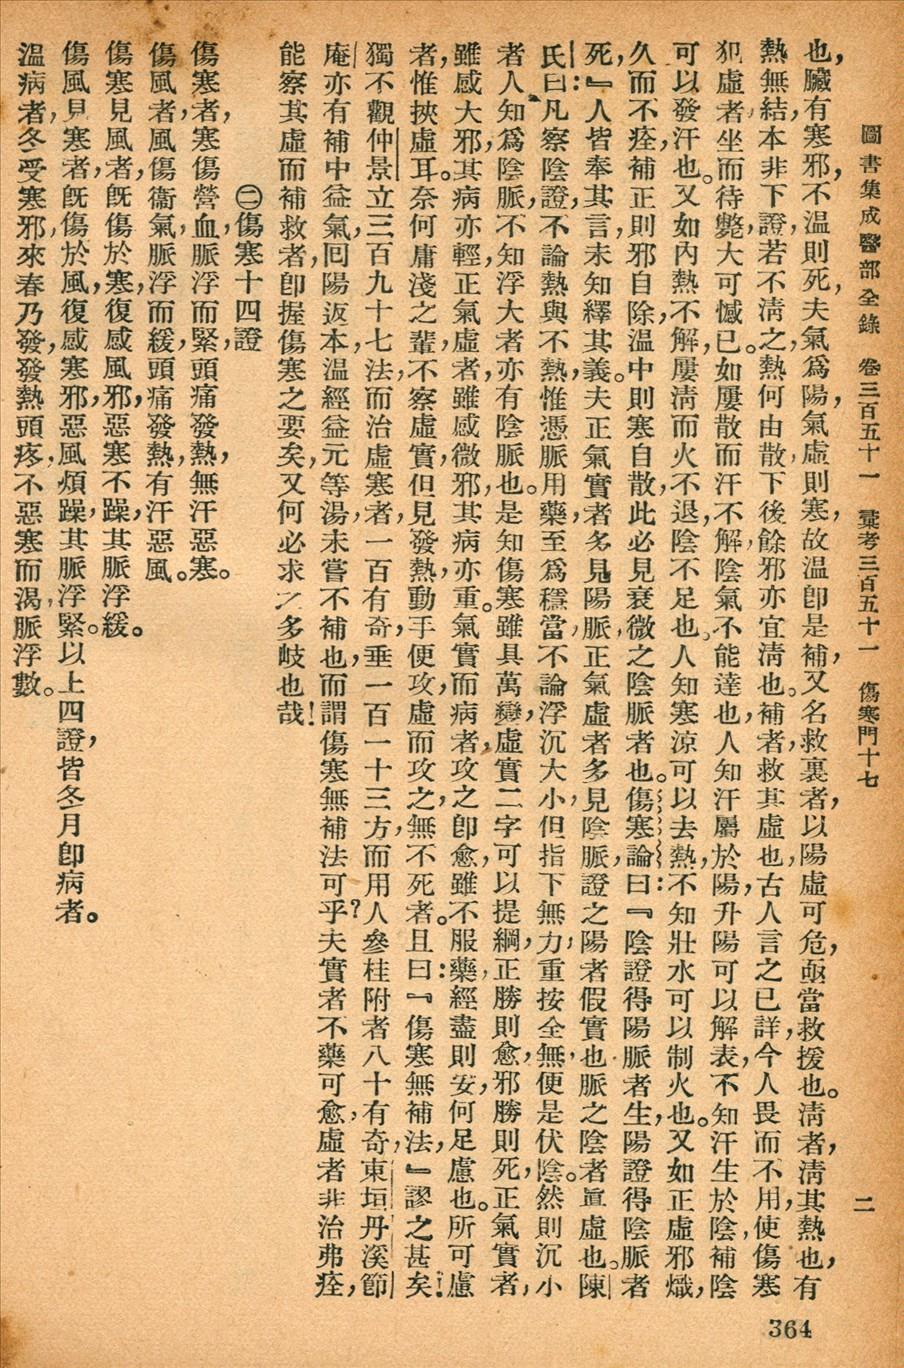 圖書集成醫部全錄 卷三百五十一 彙考三百五十一 傷寒門十七 二
也，臟有寒邪，不溫則死，夫氣爲陽，氣虛則寒，故溫卽是補，又名救裏者，以陽虛可危，亟當救援也。淸者，淸其熱也，有
熱無結，本非下證，若不淸之，熱何由散，下後餘邪亦宜淸也。補者，救其虛也，古人言之已詳，今人畏而不用，使傷寒
犯虛者坐而待斃，大可憾已。如屢散而汗不解，陰氣不能達也，人知汗屬於陽，升陽可以解表，不知汗生於陰，補陰
可以發汗也。又如內熱不解，屢淸而火不退，陰不足也，人知寒涼可以去熱，不知壯水可以制火也。又如正虛邪熾，
久而不痊，補正則邪自除，溫中則寒自散，此必見衰微之陰脈者也。傷寒論曰：『陰證得陽脈者生，陽證得陰脈者
死，』人皆奉其言，未知繹其義。夫正氣實者多見陽脈，正氣虛者多見陰脈，證之陽者假實也，脈之陰者眞虛也。陳
氏曰：凡察陰證，不論熱與不熱，惟憑脈用藥，至爲穩當，不論浮沉大小，但指下無力，重按全無，便是伏陰。然則沉小
者人知爲陰脈，不知浮大者亦有陰脈也。是知傷寒雖具萬變，虛實二字，可以提綱，正勝則愈，邪勝則死，正氣實者，
雖感大邪，其病亦輕，正氣虛者，雖感微邪，其病亦重。氣實而病者，攻之卽愈，雖不服藥，經盡則安，何足慮也。所可慮
者，惟挾虛耳。奈何庸淺之輩，不察虛實，但見發熱，動手便攻，虛而攻之，無不死者。且曰：『傷寒無補法，』謬之甚矣！
獨不觀仲景立三百九十七法，而治虛寒者，一百有奇，垂一百一十三方，而用人參桂附者八十有奇，東垣丹溪節
庵，亦有補中益氣，回陽返本，溫經益元等湯，未嘗不補也，而謂傷寒無補法可乎？夫實者不藥可愈，虛者非治弗痊，
能察其虛而補救者，卽握傷寒之要矣，又何必求之多岐也哉！
㊁傷寒十四證
傷寒者，寒傷營血，脈浮而緊，頭痛發熱，無汗惡寒。
傷風者，風傷衞氣，脈浮而緩，頭痛發熱，有汗惡風。
傷寒見風者，旣傷於寒，復感風邪，惡寒不躁，其脈浮緩。
傷風見寒者，旣傷於風，復感寒邪，惡風煩躁，其脈浮緊。以上四證，皆冬月卽病者。
溫病者，冬受寒邪，來春乃發，發熱頭疼，不惡寒而渴，脈浮數。
364